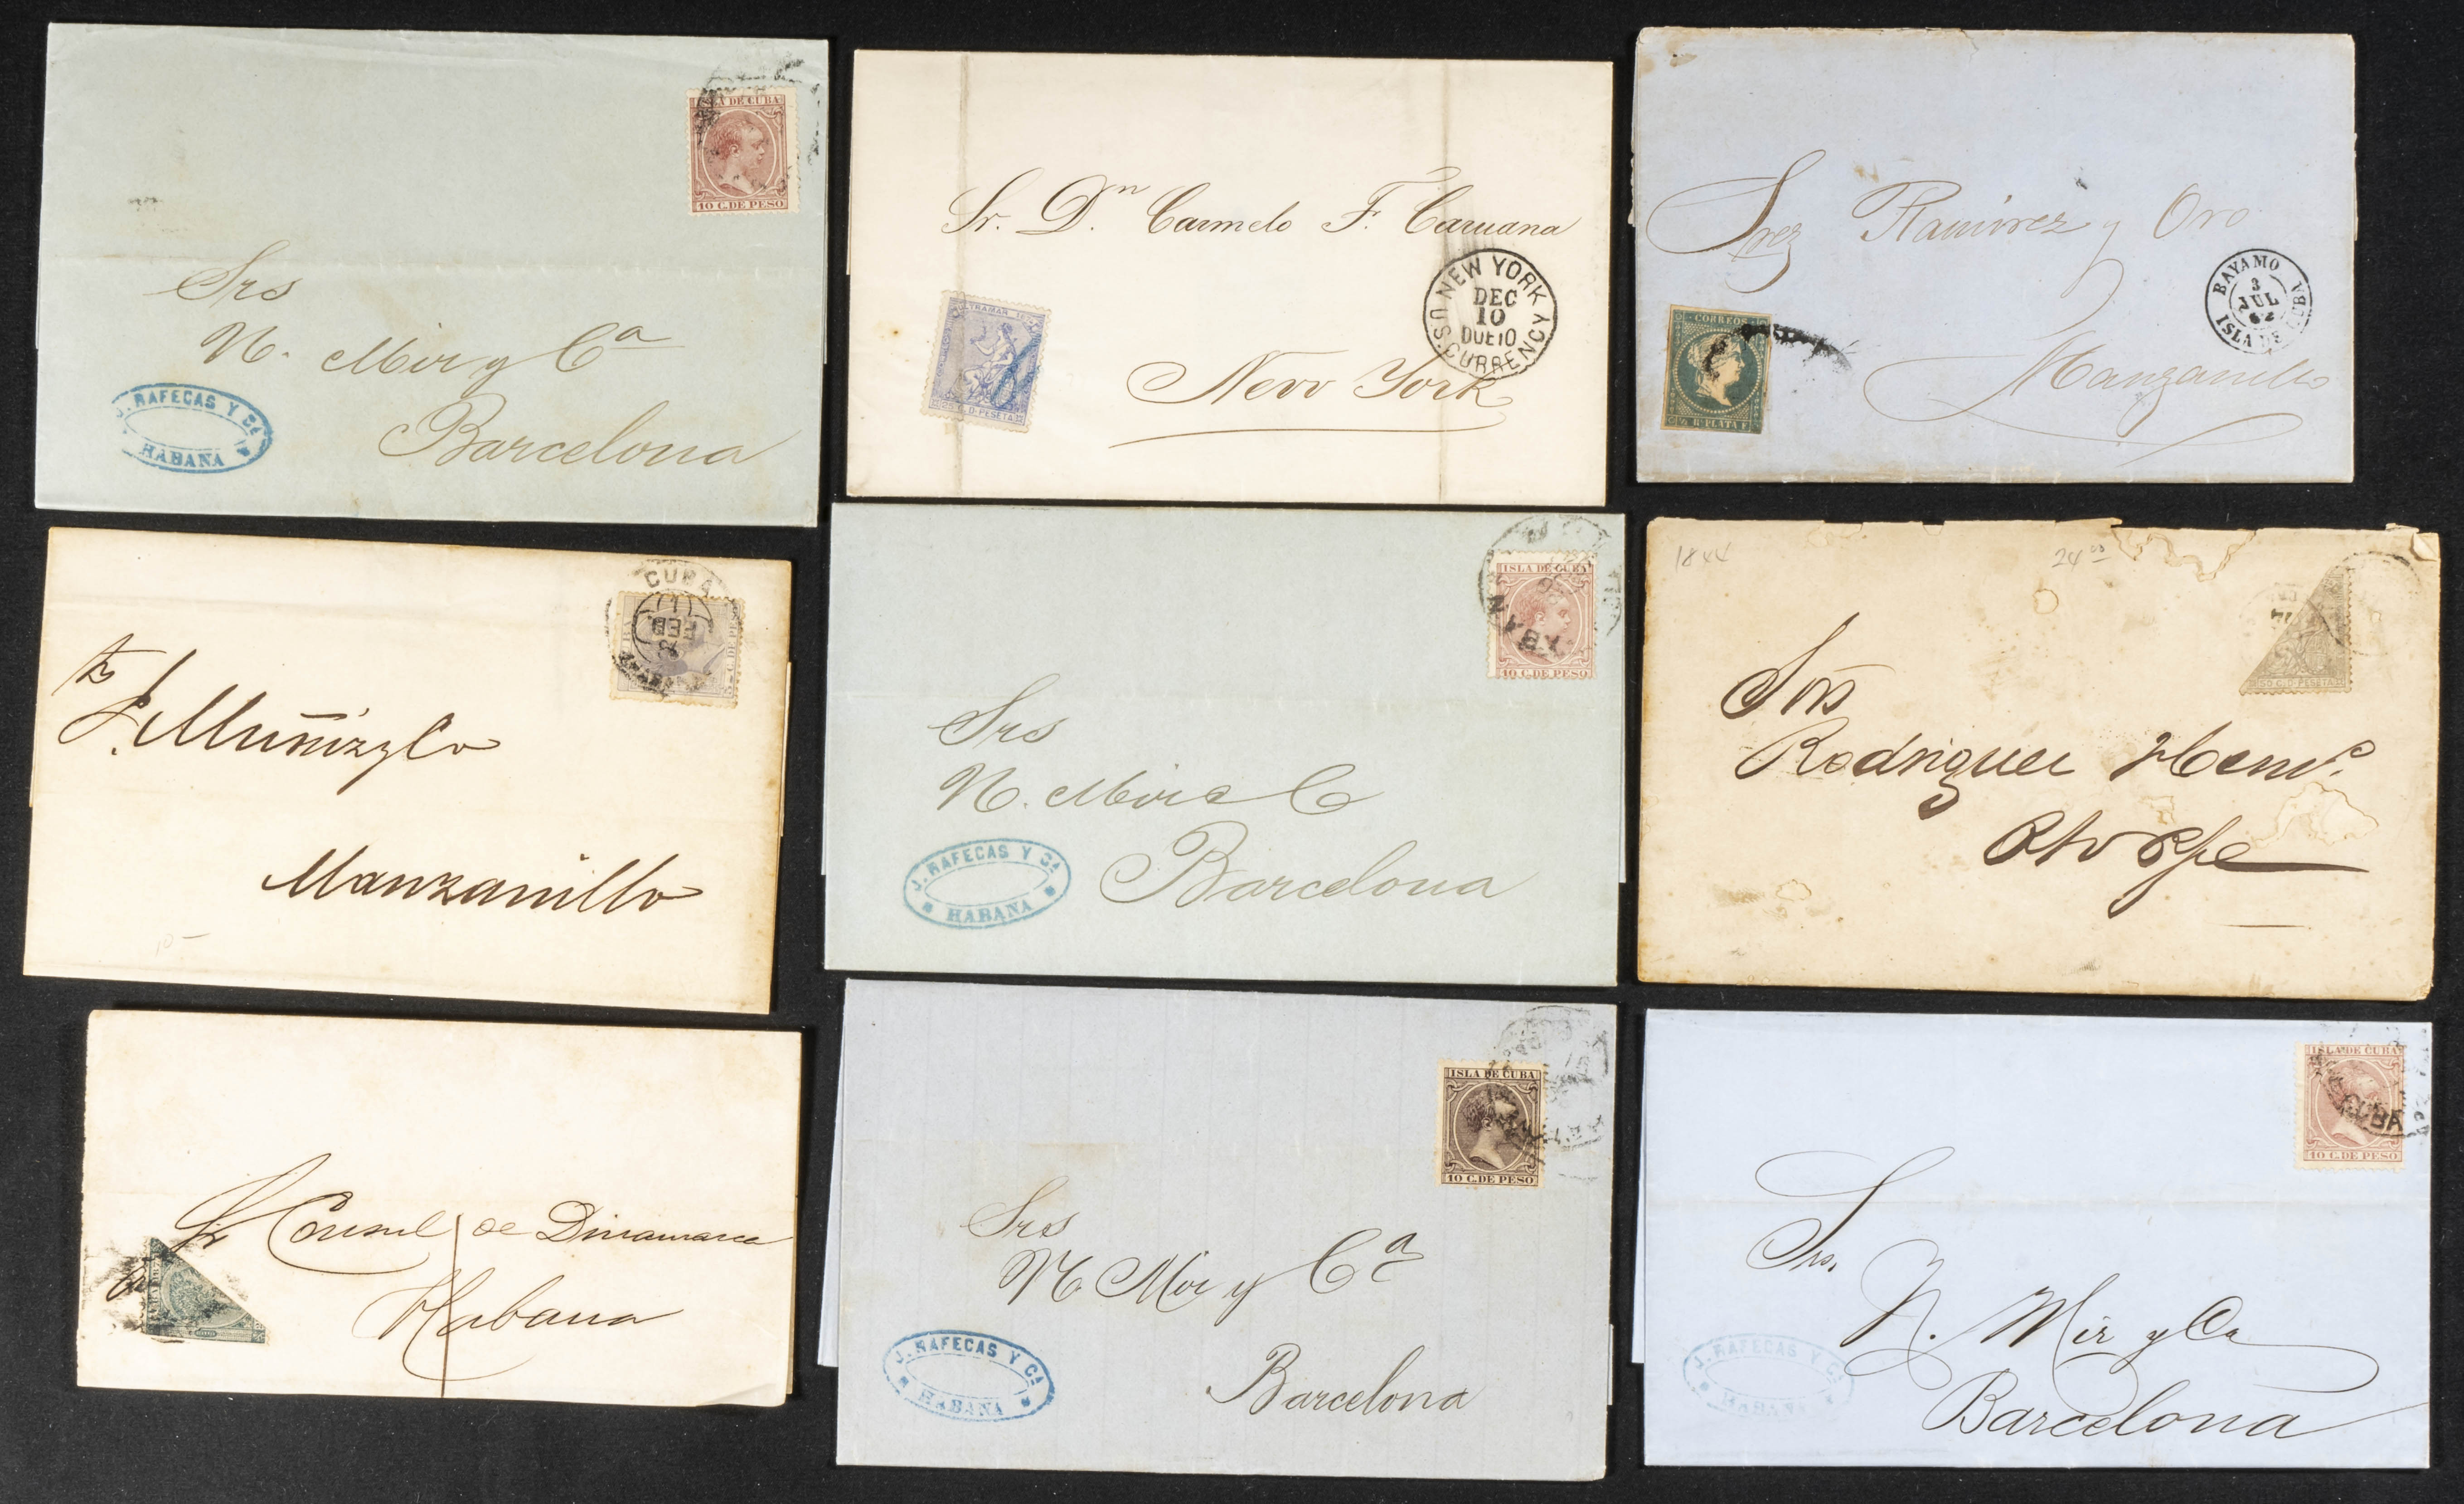 ISLA DE CUBA
10 C. DE PESO
Srs
N. Mir y Cª
Barcelona
J. RAFECAS Y Cª
HABANA
Sr. Dn Carmelo F. Caruana
New York
NEW YORK
DEC
10
DUE 10
U.S. CURRENCY
ULTRAMAR
25 C. D. PESETA
Srez Ramirez y Oro
Manzanillo
BAYAMO
3
JUL
62
ISLA DE CUBA
CORREOS
½ R. PLATA F.
CUBA
(1)
FEB
C. DE PESO
J. Muñiz y Co
Manzanillo
10-
ISLA DE CUBA
10 C. DE PESO
HABAN
Srs
N. Mir a C
Barcelona
J. RAFECAS Y Cª
HABANA
1844
24 00
50 C. D. PESETA
Sres
Rodriguez Hermº
Sr Consul de Dinamarca
Habana
ISLA DE CUBA
10 C. DE PESO
Srs
N. Mir y Cª
Barcelona
J. RAFECAS Y Cª
HABANA
ISLA DE CUBA
CUBA
10 C. DE PESO
Srs.
N. Mir y Ca
Barcelona
J. RAFECAS Y Cª
HABANA